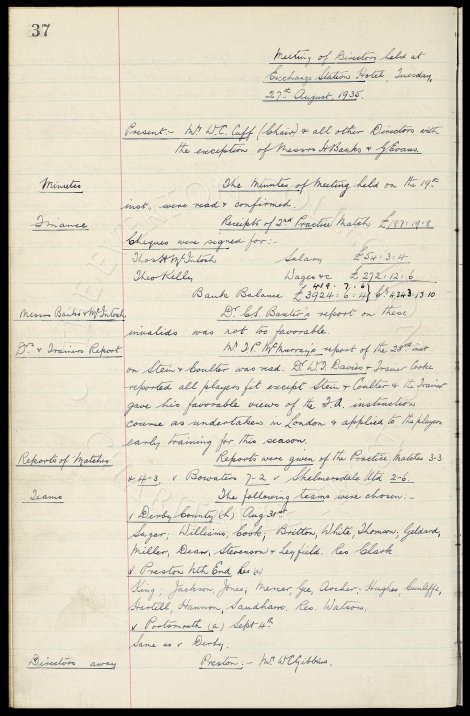 37
Meeting of Directors held at
Exchange Station Hotel, Tuesday,
27th August, 1935.
Present:- Mr. W.C. Cuff (Chair) & all other Directors with
the exception of Messrs H Banks & G Evans.
Minutes The Minutes of Meeting held on the 19th
inst., were read & confirmed.
Finance Receipts of 2nd Practice Match £187.19.8
Cheques were signed for:-
Thos H McIntosh Salary £54.3.4
Theo Kelly Wages &c £272.12.6
419.7.6
Bank Balance £3924.6.4 4343.13.10
Messrs Banks & McIntosh Dr. C.S. Baxter's report on these
invalids was not too favorable.
Dr. & Trainers Report Mr. J.P. McMurray's report of the 28th inst
on Stein & Coulter was read. Dr. W.J. Davies & Trainer Cooke
reported all players fit except Stein & Coulter & the Trainer
gave his favorable views of the F.A. instruction
course as undertaken in London & applied to the players
early training for this season.
Reports of Matches Reports were given of the Practice Matches 3-3
& 4-3, v Bowaters 7-2 v Skelmersdale Utd 2-6.
Teams The following teams were chosen:-
v Derby County (h) Aug 31st
Sagar; Williams, Cook; Britton, White, Thomson, Geldard,
Miller, Dean, Stevenson & Leyfield. Res Clark
v Preston Nth End Res (a)
King; Jackson, Jones; Mercer, Gee, Archer; Hughes, Cunliffe,
Hartill, Hannon, Sandham. Res. Watson.
v Portsmouth (a) Sept 4th
Same as v Derby.
Directors away Preston:- Mr. W C Gibbins.